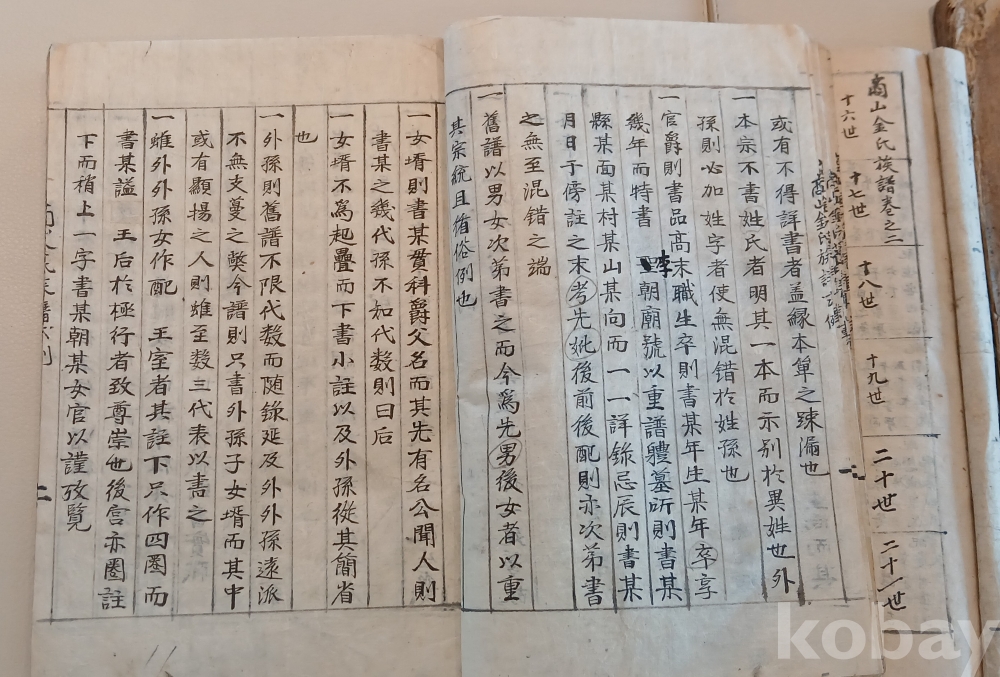 山金氏族譜卷之二
十六世
十七世
十八世
十九世
二十世
二十一世
或有不得詳書者盖緣本單之踈漏也
一本宗不書姓氏者明其一本而示別於異姓也外
孫則必加姓字者使無混錯於姓孫也
一官爵則書品高末職生卒則書某年生某年卒享
幾年而特書 李朝廟號以重譜軆墓所則書某
縣某面某村某山某向而一一詳錄忌辰則書某
月日于傍註之末考先妣後前後配則亦次第書
之無至混錯之端
一舊譜以男女次第書之而今爲先男後女者以重
其宗統且循俗例也
一女壻則書某貫科爵父名而其先有名公聞人則
書某之幾代孫不如代數則曰后
一女壻不爲起疊而下書小註以及外孫從其簡省
也
一外孫則舊譜不限代数而随錄延及外外孫遠派
不無支蔓之獘今譜則只書外孫子女壻而其中
或有顯揚之人則雖至数三代表以書之
一雖外外孫女作配 王室者其註下只作四圈而
書某謚 王后於極行者致尊崇也後宮亦圈註
下而稍上一字書某朝某女官以謹攷覽
二
11
kobay